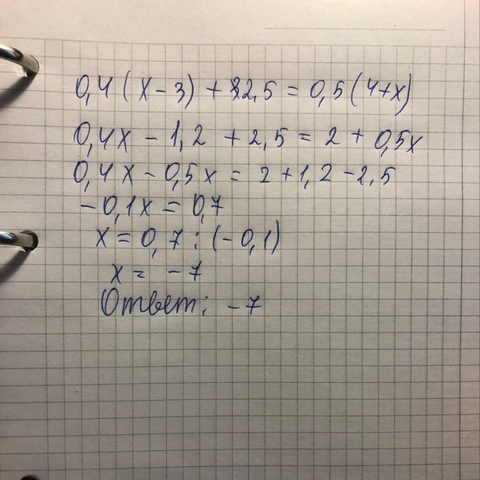 0,4(x-3) + 2,5 = 0,5(4+x)
0,4x - 1,2 + 2,5 = 2 + 0,5x
0,4x - 0,5x = 2 + 1,2 - 2,5
-0,1x = 0,7
x = 0,7 : (-0,1)
x = -7
Ответ: -7